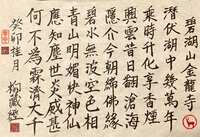 碧湖山金龍寺
潛伏湖中幾萬年
乘時升化享香煙
興雲昔日翻滄海
隱介今朝締佛緣
碧水無波空色相
青山明媚快神仙
應知塵世炎威甚
何不為霖濟大千
癸卯桂月